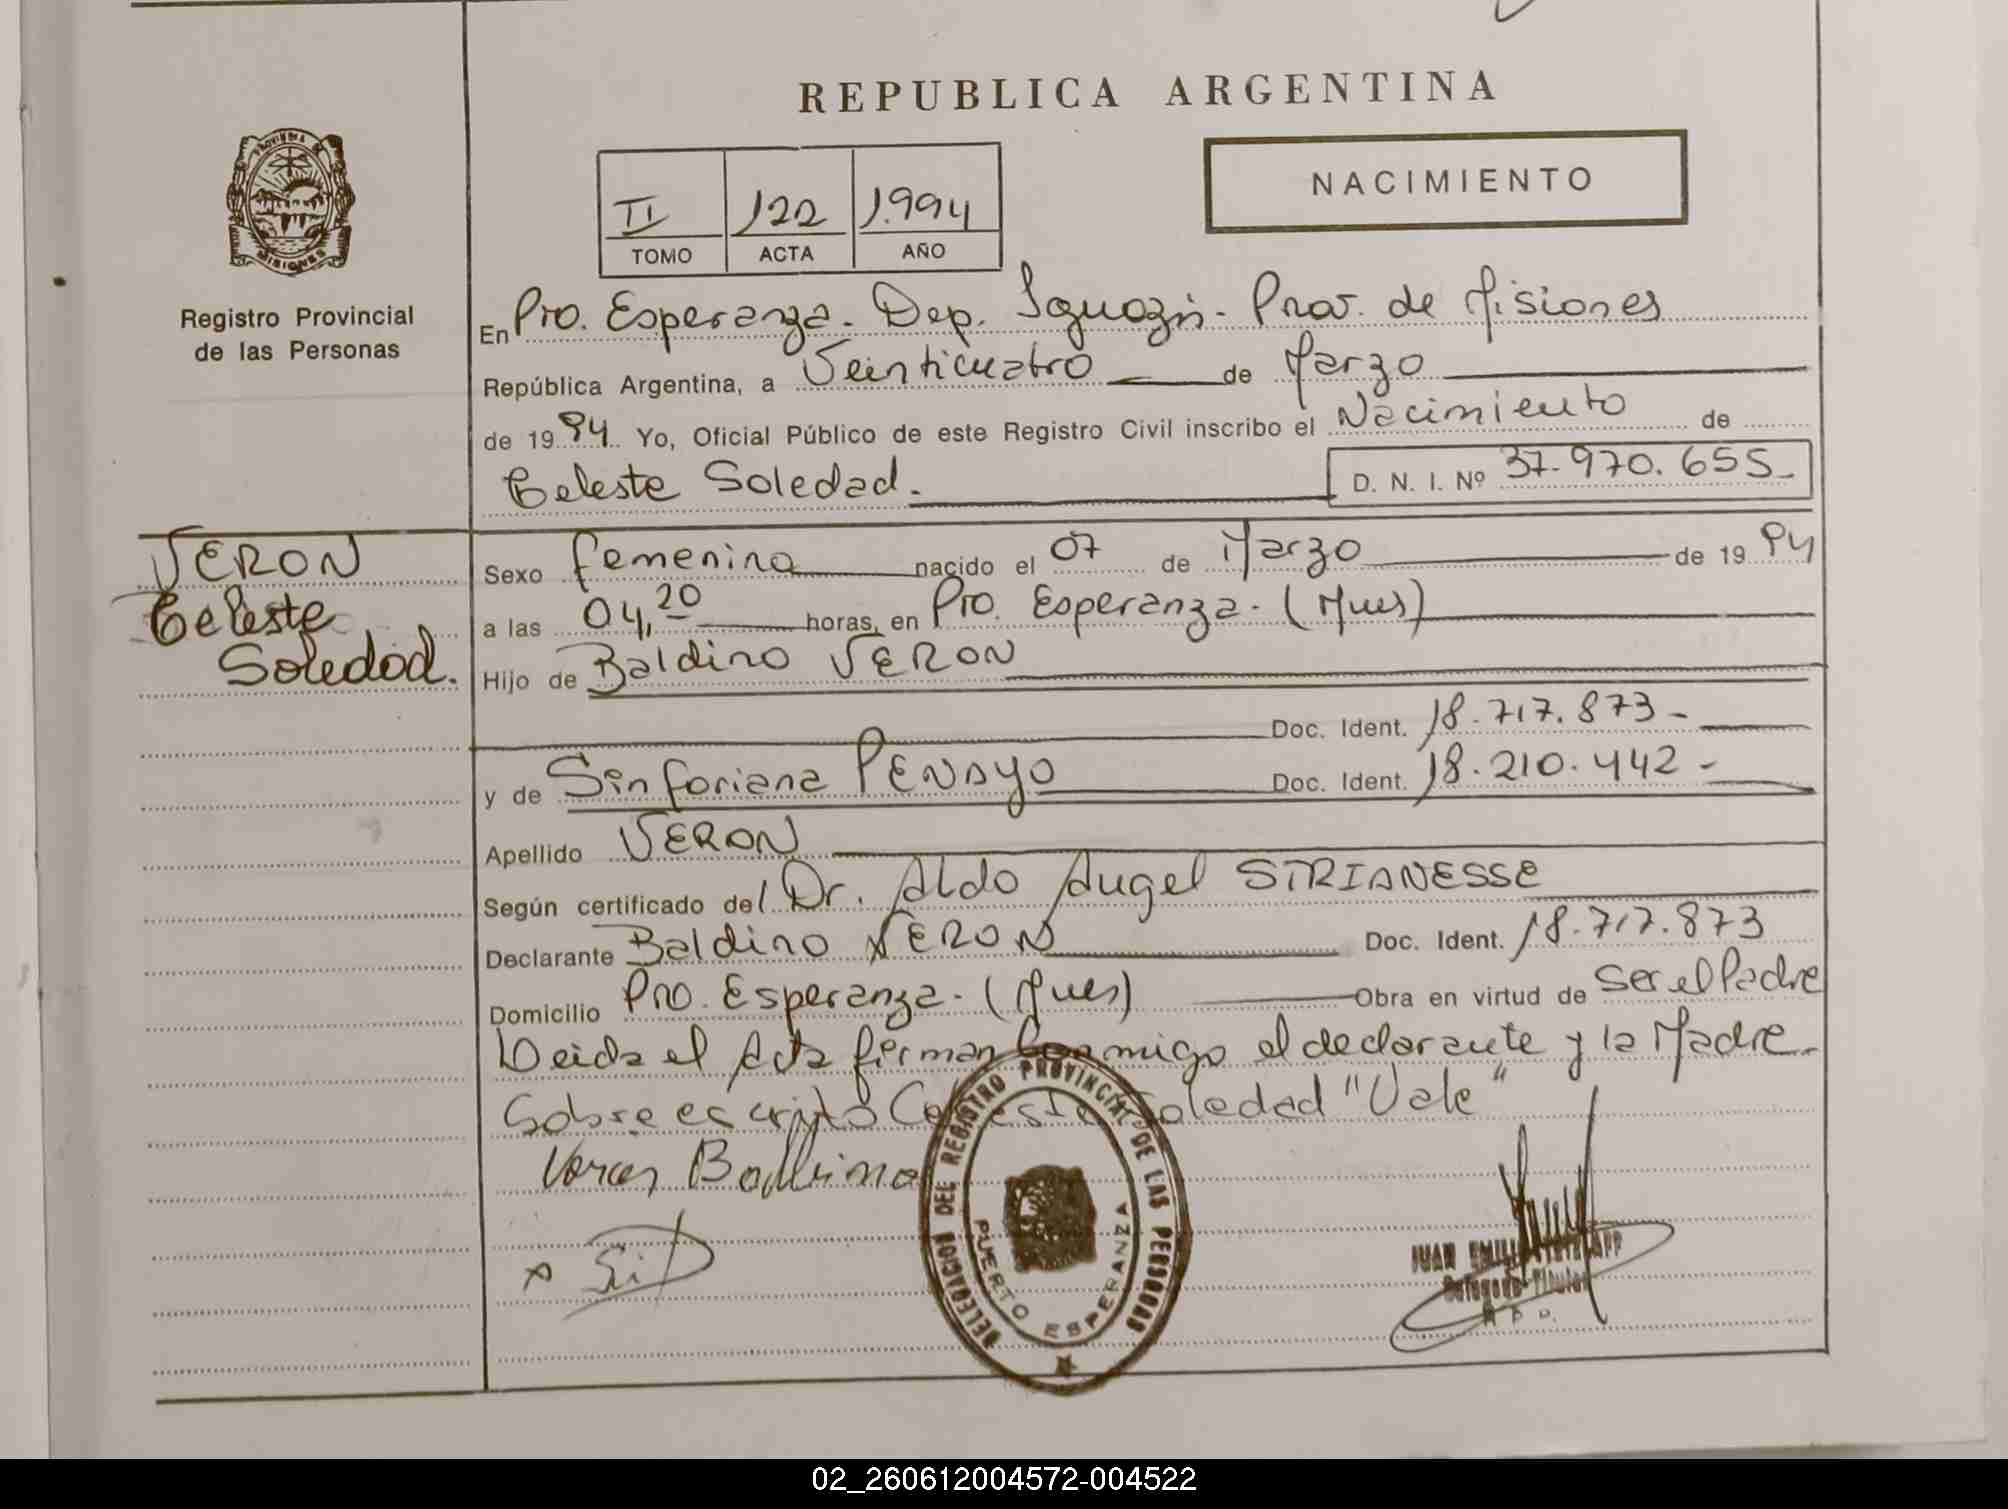 REPUBLICA ARGENTINA
PROVINCIA DE
MISIONES
Registro Provincial
de las Personas
II 122 1.994
TOMO ACTA AÑO
NACIMIENTO
En Pto. Esperanza - Dep. Iguazú - Prov. de Misiones
República Argentina, a Veinticuatro de Marzo
de 1994 Yo, Oficial Público de este Registro Civil inscribo el Nacimiento de
Celeste Soledad. D. N. I. Nº 37.970.655-
VERON
Celeste
Soledad.
Sexo femenino nacido el 07 de Marzo de 1994
a las 04,20 horas, en Pto. Esperanza - (Mnes)
Hijo de Baldino VERON
Doc. Ident. 18.717.873-
y de Sinforiana PENAYO Doc. Ident. 18.210.442-
Apellido VERON
Según certificado del Dr. Aldo Angel STRIANESSE
Declarante Baldino VERON Doc. Ident. 18.717.873
Domicilio Pto. Esperanza - (Mnes) Obra en virtud de Ser el Padre
Leida el Acta firman Conmigo el declarante y la Madre.
Sobre escripto Celeste Soledad "Vale"
DELEGACION DEL REGISTRO PROVINCIAL DE LAS PERSONAS
PUERTO ESPERANZA
JUAN
Delegado Titular
02_260612004572-004522